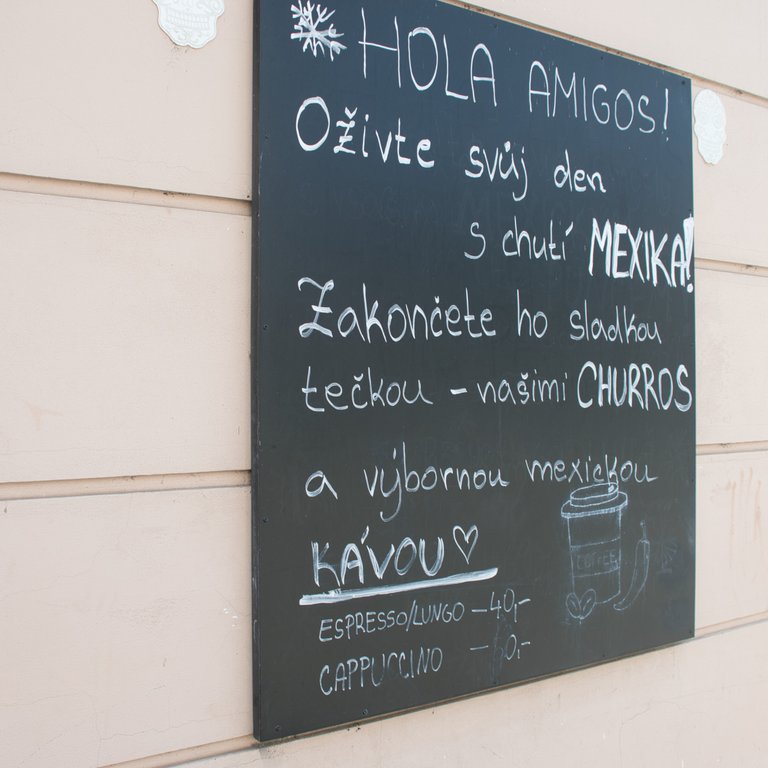 HOLA AMIGOS!
Oživte svůj den
s chutí MEXIKA!
Zakončete ho sladkou
tečkou - našimi CHURROS
a výbornou mexickou
KÁVOU
ESPRESSO/LUNGO - 40,-
CAPPUCCINO - 60,-
COFFEE